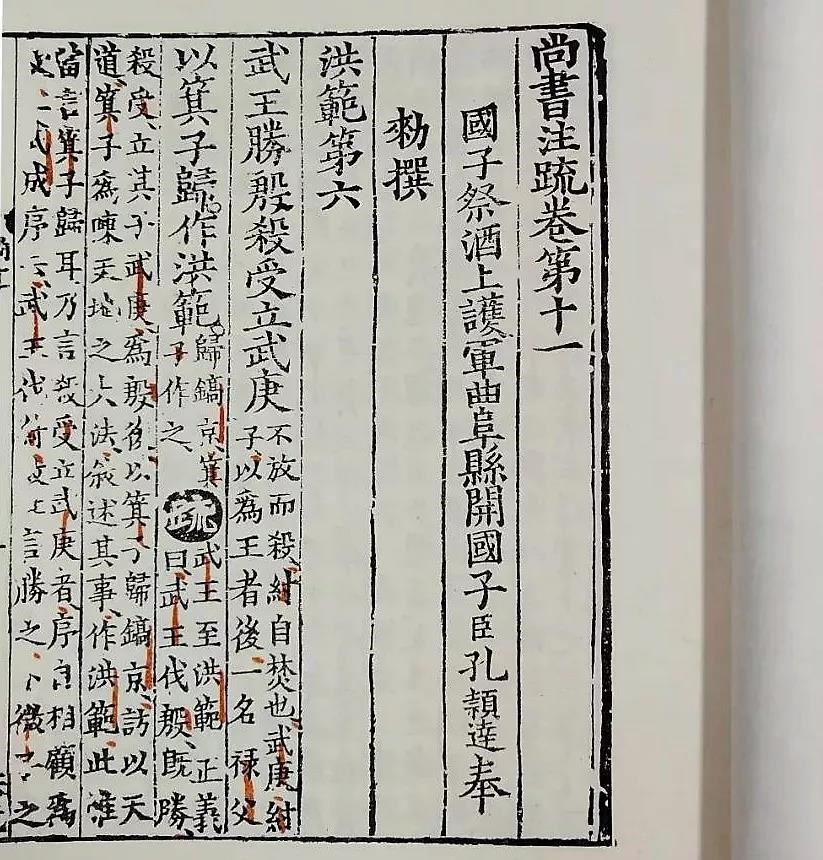 尚書注疏卷第十一
國子祭酒上護軍曲阜縣開國子臣孔穎達奉
勑撰
洪範第六
武王勝殷殺受立武庚
不放而殺紂自焚也武庚紂
子以爲王者後一名禄父
以箕子歸作洪範
歸鎬京箕
子作之
疏
武王至洪範 正義
曰武王伐殷既勝
殺受立其子武庚爲殷後以箕子歸鎬京訪以天
道箕子爲陳天地之大法叙述其事作洪範此惟
當言箕子歸耳乃言殺受立武庚者序自相顧爲
武成序云武王伐紂故此言勝之下微子之